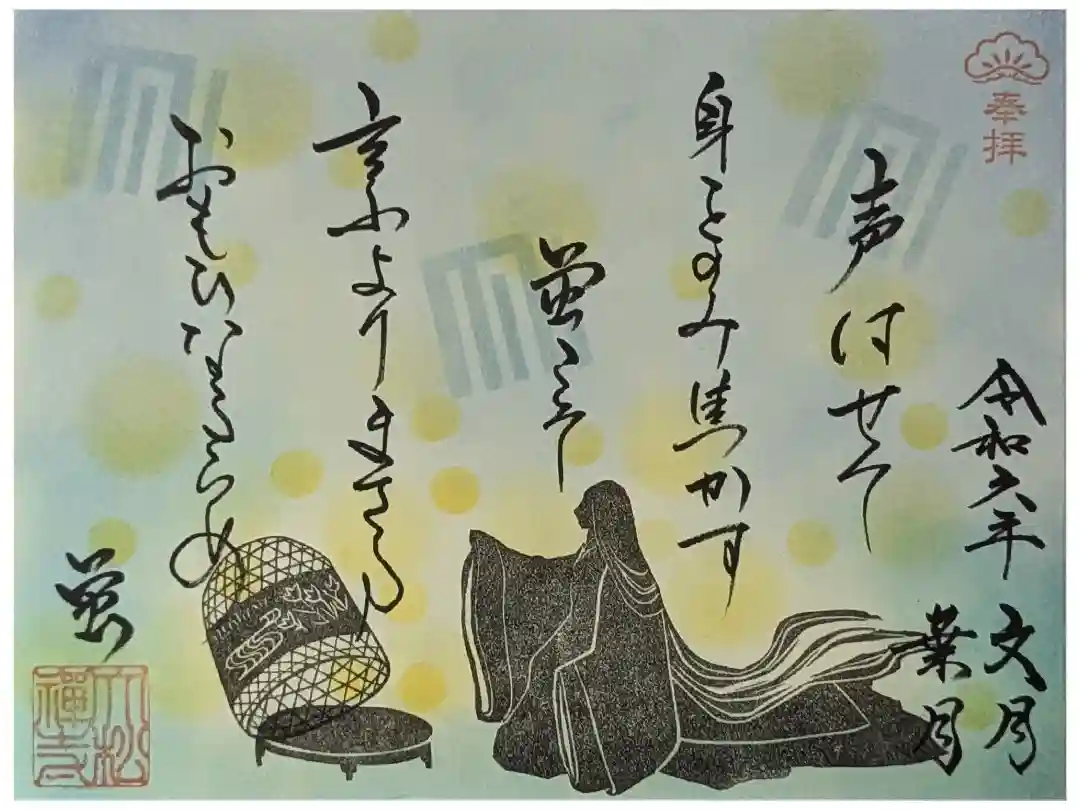 奉拝
令和六年
文月
葉月
声はせて
身をのみ焦かす
蛍こそ
言ふよりまさる
おもひなるらめ
蛍
松
禅寺